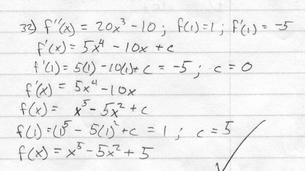 32) f''(x) = 20x³ - 10 ; f(1) = 1 ; f'(1) = -5
f'(x) = 5x⁴ - 10x + c
f'(1) = 5(1) - 10(1) + c = -5 ; c = 0
f'(x) = 5x⁴ - 10x
f(x) = x⁵ - 5x² + c
f(1) = (1)⁵ - 5(1)² + c = 1 ; c = 5
f(x) = x⁵ - 5x² + 5 ✓